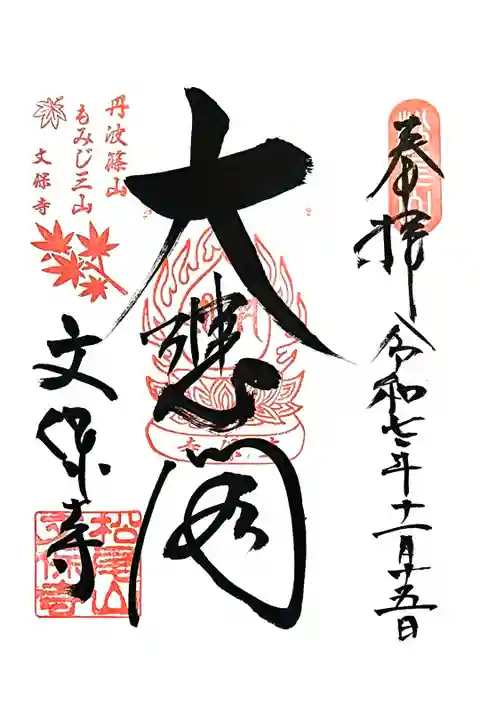 奉拝
令和七年十一月十五日
大悲閣
丹波篠山
もみじ三山
文保寺
文保寺
松尾山
文保寺